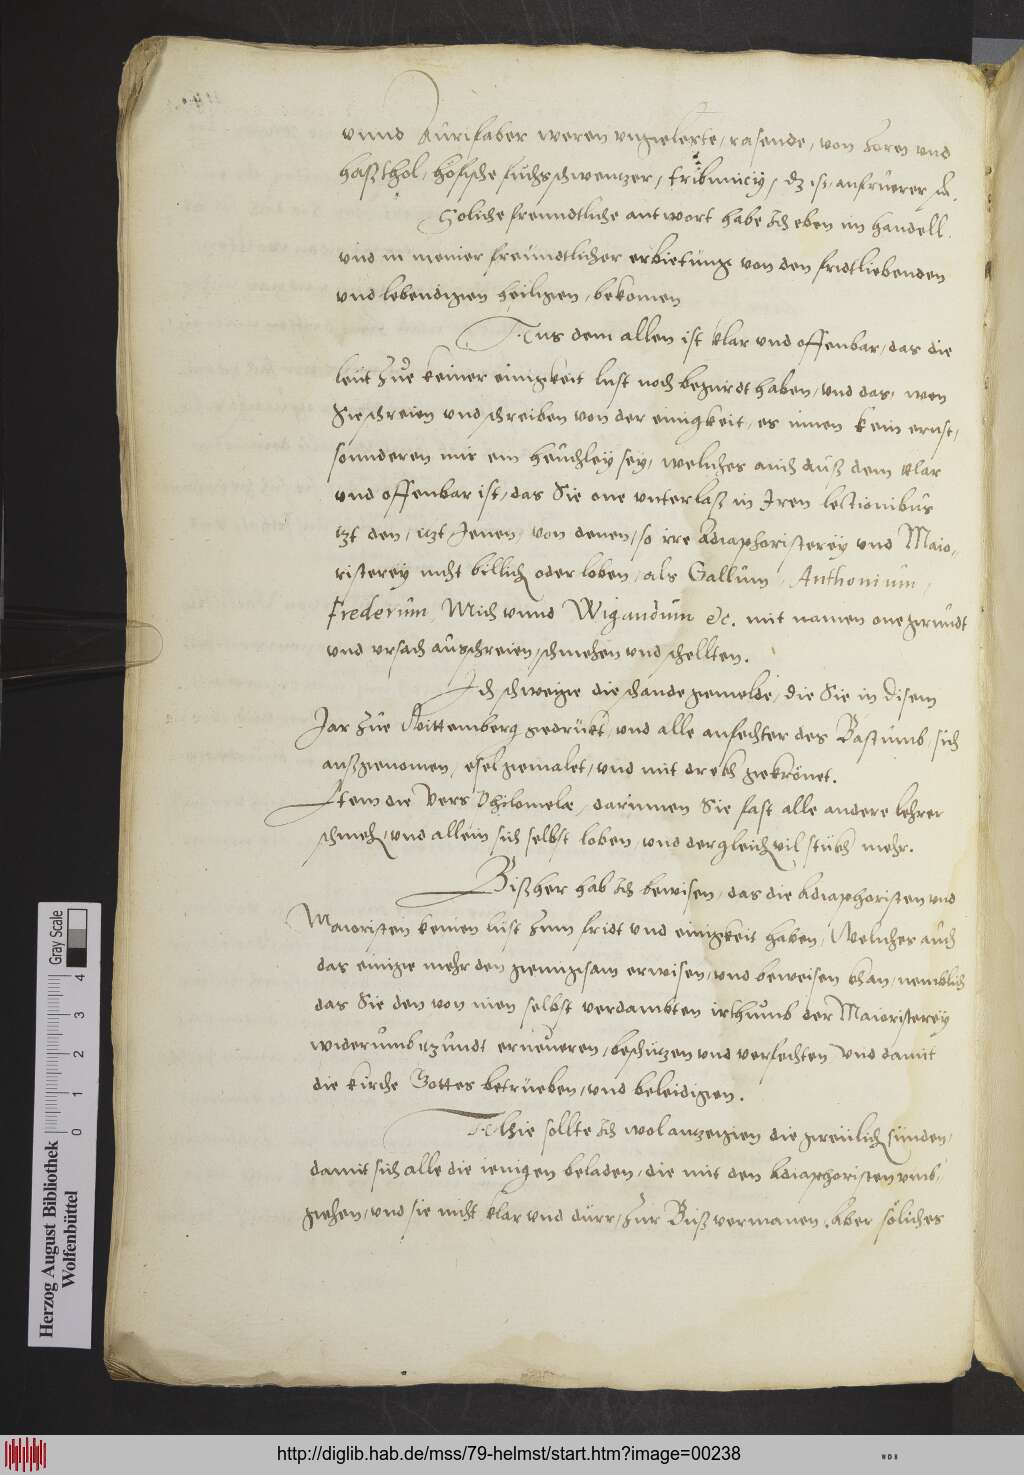 unnd Aurifaber weren ungelerte, rasende, von Zoren und
haß thol, höfische fuchsschwentzer, tribunicij, dz ist, anfrurer
Soliche freundtliche antwort habe Ich eben im handell.
und in meiner freundtlicher erbietung von den fridtliebenden
und lebendigen heiligen, bekomen
Aus dem allen ist klar und offenbar, das die
leut zue keiner einigkeit lust noch begirdt haben, und das, wen
Sie schreien und schreiben von der einigkeit, es innen kein ernst,
sonnderen nur ein heuchley sey, welches auch auß dem klar
und offenbar ist, das Sie one unterlaß in Iren lectionibus
itzt den, itzt Jenen, von denen, so ire Adiaphoristerey und Maio-
risterey nicht billich oder loben, als Gallum, Anthonium,
Frederum, Mich unnd Wigandum &c. mit namen one grundt
und ursach ausschreien, schmehen und schellten.
Ich schweige die schandegemelde, die Sie in disem
Jar zue Wittemberg gedrükt, und alle anfechter des Bastumb, sich
außgenomen, esel gemalet, und mit drekh gekrönet.
Item die Vers Philomelæ, darinnen Sie fast alle andere lehrer
schmeh, und allein sich selbst loben, und dergleich vil stükh mehr.
Bißher hab Ich bewisen, das die Adiaphoristen und
Maioristen keinen lust zum fridt und einigkeit haben, Welches auch
das einige mehr den genugsam erwisen, und beweisen khan, nemblich
das Sie den von inen selbst verdambten irthumb der Maioristerey
widerumb itzundt erneueren, beschützen und verfechten und damit
die kirche Gottes betrüeben, und beleidigen.
Alhie sollte Ich wol anzeigen die greülich sünden,
damit sich alle die ienigen beladen, die mit den Adiaphoristen umb-
gehen, und sie nicht klar und dürr, zur Buß vermanen, Aber söliches
Herzog August Bibliothek
Wolfenbüttel
Gray Scale
0 1 2 3 4
http://diglib.hab.de/mss/79-helmst/start.htm?image=00238
WDB